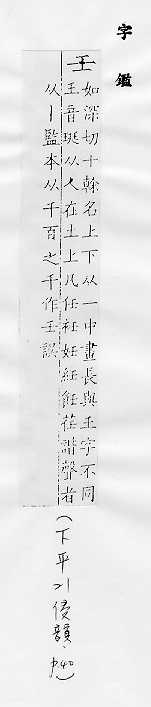 字鑑
壬
如深切十幹名上下从一中畫長與王字不同
王音珽从人在土上凡任衽妊紝飪荏諧聲者
从丨監本从千百之千作壬誤
(下平21侵韻,p40)